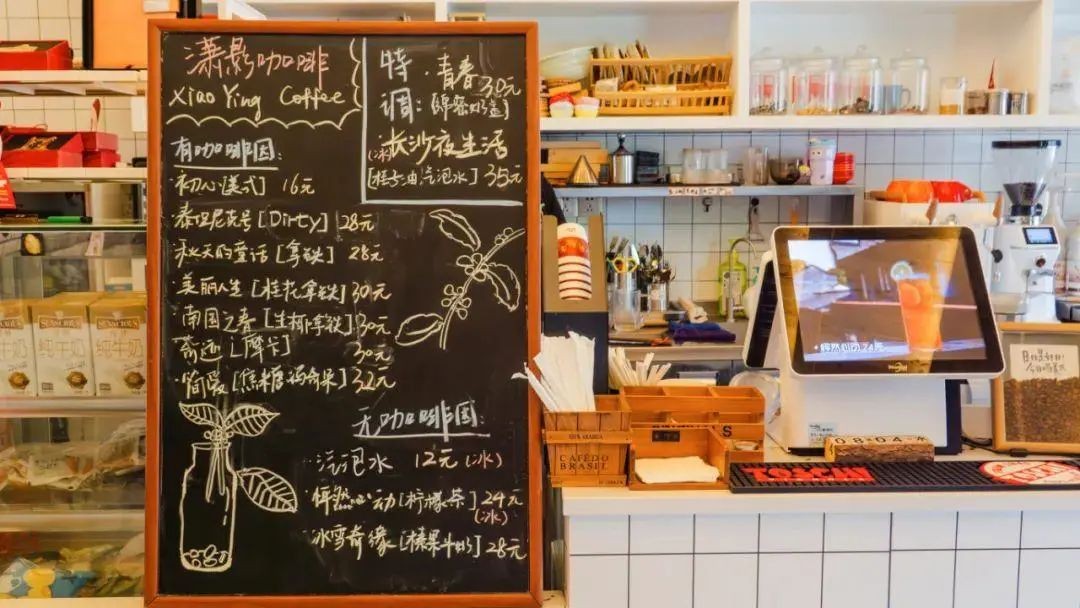 潇影咖啡
Xiao Ying Coffee
特调:
·青春 30元
·长沙夜生活
(冰)
[桂花油汽泡水] 35元
有咖啡因:
·初心[美式] 16元
·泰坦尼克号[Dirty] 28元
·秋天的童话[拿铁] 28元
·美丽人生[桂花拿铁] 30元
·南国之春[生椰拿铁] 30元
·奇迹[摩卡] 30元
·简爱[焦糖玛奇朵] 32元
无咖啡因
·汽泡水 12元(冰)
·怦然心动[柠檬茶] 24元
(冰)
·冰雪奇缘[榛果牛奶] 28元
纯牛奶
纯牛奶
CAFÉ DO
BRASIL
CAFÉ DO
BRASIL
·怦然心动 24元
08-04